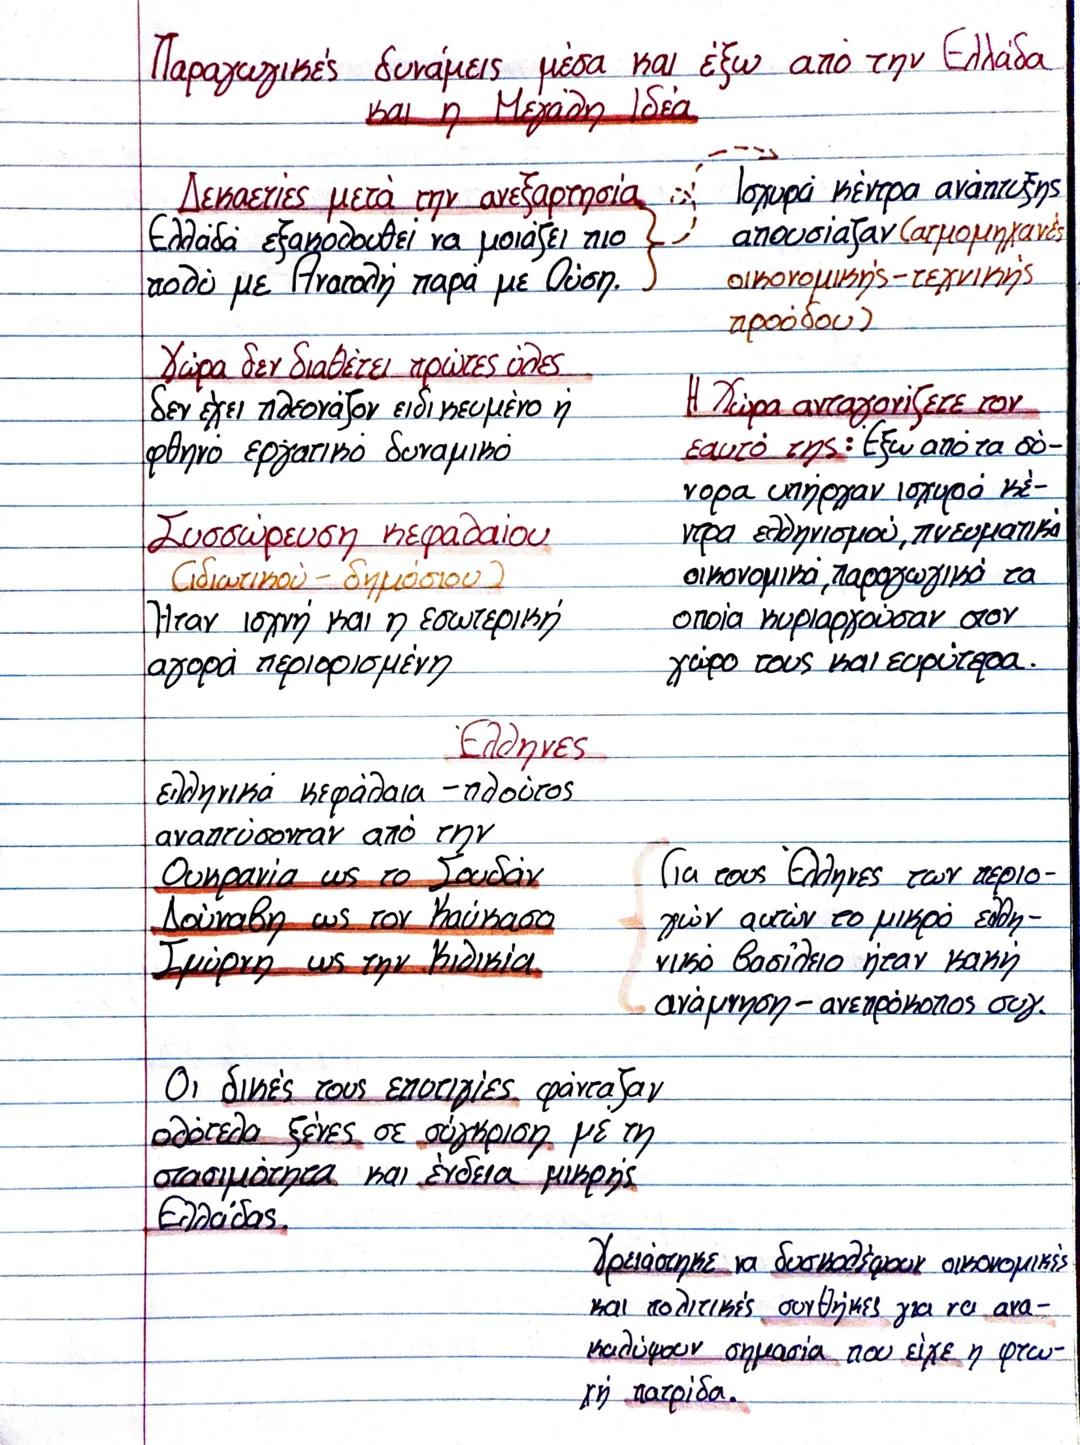 Παραγωγικές δυνάμεις μέσα και έξω από την Ελλάδα
και η Μεγάλη Ιδέα
Δεκαετίες μετά την ανεξαρτησία
Ελλάδα εξακολουθεί να μοιάζει πιο
πολύ με Ανατολή παρά με Δύση.
Ισχυρά κέντρα ανάπτυξης
απουσιάζαν (ατμομηχανές
οικονομικής - τεχνικής
προόδου)
Χώρα δεν διαθέτει πρώτες ύλες
δεν έχει πλεονάζον ειδικευμένο ή
φθηνό εργατικό δυναμικό
Η Χώρα ανταγονίζετε τον
εαυτό της: Έξω από τα σύ-
νορα υπήρχαν ισχυρά κέ-
ντρα ελληνισμού, πνευματικά
οικονομικά, παραγωγικά τα
οποία κυριαρχούσαν στον
χώρο τους και ευρύτερα.
Συσσώρευση κεφαλαίου
(ιδιωτικού - δημόσιου)
Ήταν ισχνή και η εσωτερική
αγορά περιορισμένη
Έλληνες
ελληνικά κεφάλαια - πλούτος
αναπτύσονταν από την
Ουκρανία ως το Σουδάν
Δούναβη ως τον Καύκασο
Σμύρνη ως την Κιλικία
Για τους Έλληνες των περιο-
χών αυτών το μικρό ελλη-
νικό βασίλειο ήταν κακή
ανάμνηση - ανεπρόκοπος συγ.
Οι δικές τους επιτυχίες φάνταζαν
ολότελα ξένες σε σύγκριση με τη
στασιμότητα και ένδεια μικρής
Ελλάδας.
Χρειάστηκε να δυσκολέψουν οικονομικές
και πολιτικές συνθήκες για να ανα-
καλύψουν σημασία που είχε η φτω-
χή πατρίδα.